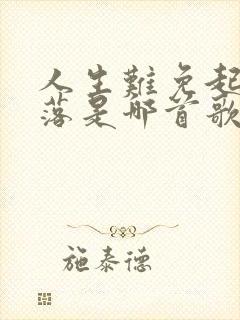 人生難免起
落是哪首歌
施泰德